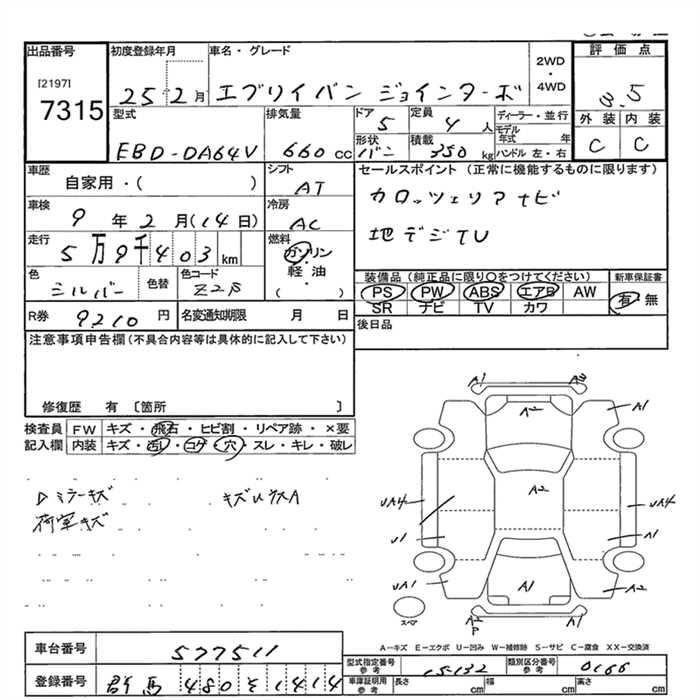 出品番号
[2197]
7315
初度登録年月
25 2月
車名・グレード
エブリイバン ジョインターボ
2WD
・
4WD
評価点
3.5
外装 内装
C C
型式
EBD-DA64V
排気量
660cc
ドア
5
定員
4人
ディーラー・並行
モデル年式 年
形状
バン
積載
350kg
ハンドル 左・右
車歴
自家用・( )
シフト
AT
セールスポイント (正常に機能するものに限ります)
カロッツェリアナビ
地デジTV
車検
9年2月(14日)
冷房
AC
走行
5万9千403km
燃料
ガソリン
・
軽油
・
( )
色
シルバー
色替
色コード
Z2S
装備品 (純正品に限り○をつけてください)
PS PW ABS エアB AW
SR ナビ TV カワ
新車保証書
有・無
R券 9210円
名変通知期限 月 日
後日品
注意事項申告欄 (不具合内容等は具体的に記入して下さい)
修復歴 有 [箇所 ]
検査員記入欄
FW キズ・飛石・ヒビ割・リペア跡・×要
内装 キズ・汚レ・コゲ・穴・スレ・キレ・破レ
Dミラーキズ
荷室キズ
A1 A3
A2 A1
A2
UA4 UA4
U1 A1
UA1 A1 A2
スペア
A2 A1
P
A-キズ E-エクボ U-凹み W-補修跡 S-サビ C-腐食 XX-交換済
車台番号 577511
登録番号 群馬 480 そ 1414
型式指定番号 参考 15132
類別区分番号 参考 0166
車庫証明用 参考 長さ cm 幅 cm 高さ cm